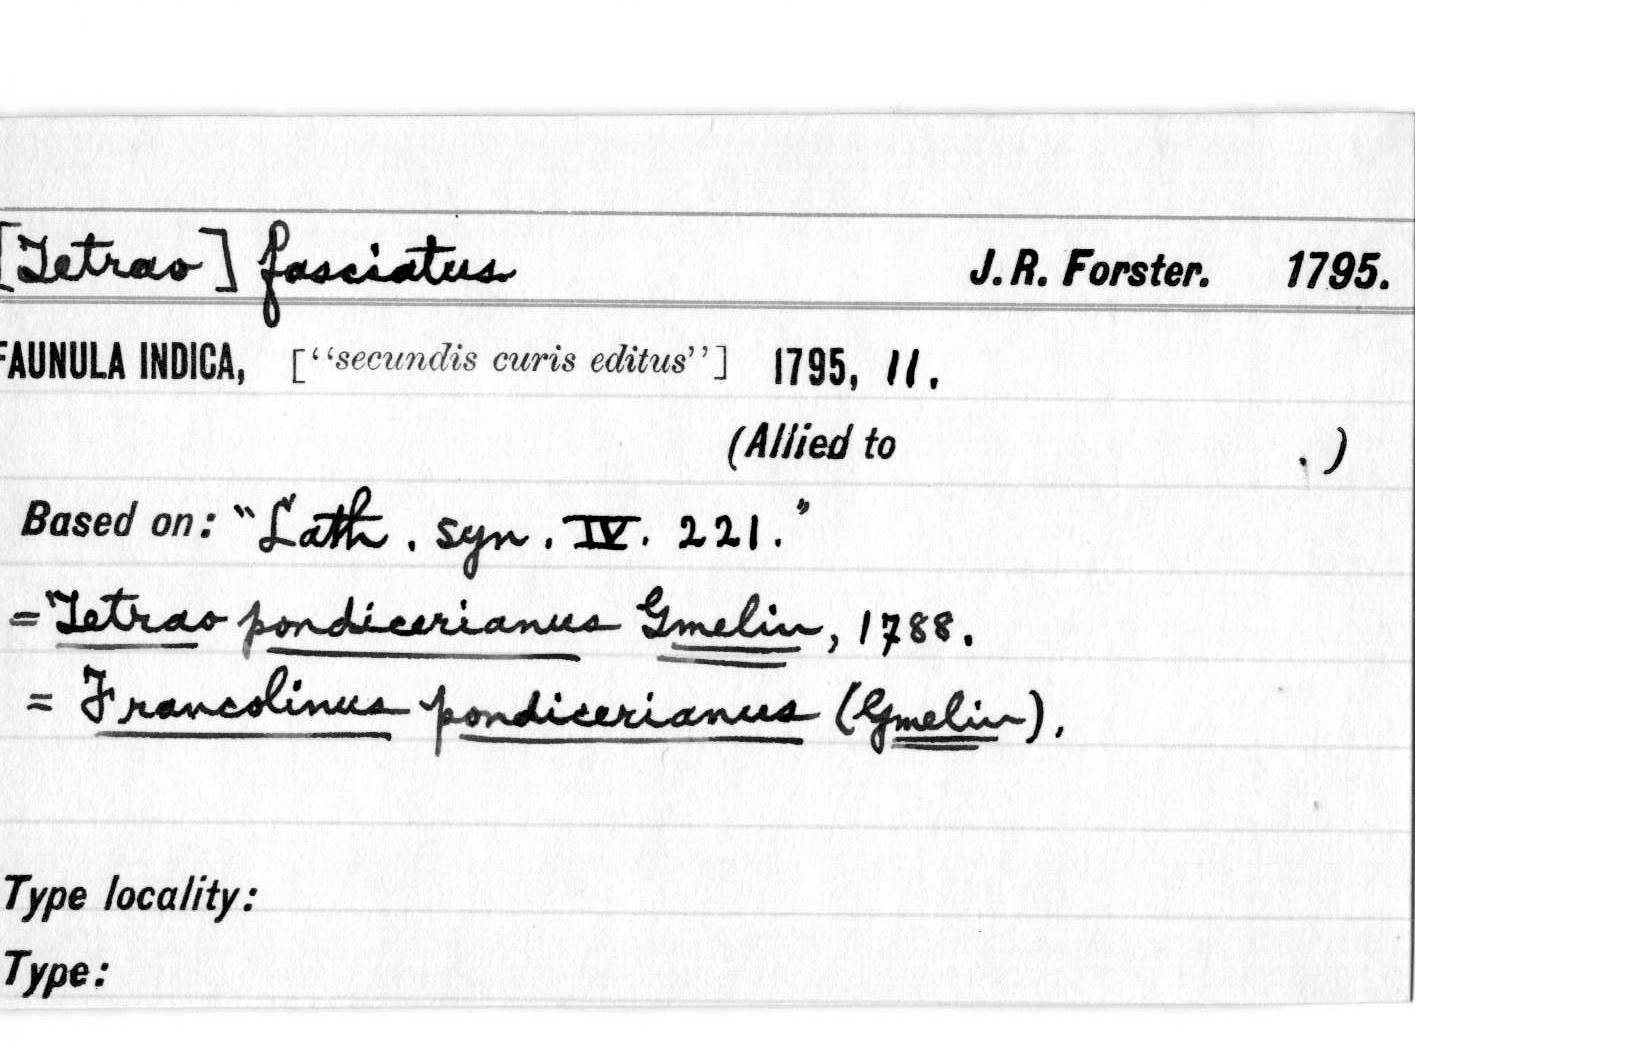 [Tetrao] fasciatus J. R. Forster. 1795.
FAUNULA INDICA, [“secundis curis editus”] 1795, 11.
(Allied to . )
Based on: “Lath. syn. IV. 221.”
= "Tetrao pondicerianus Gmelin, 1788.
= Francolinus pondicerianus (Gmelin).
Type locality:
Type: